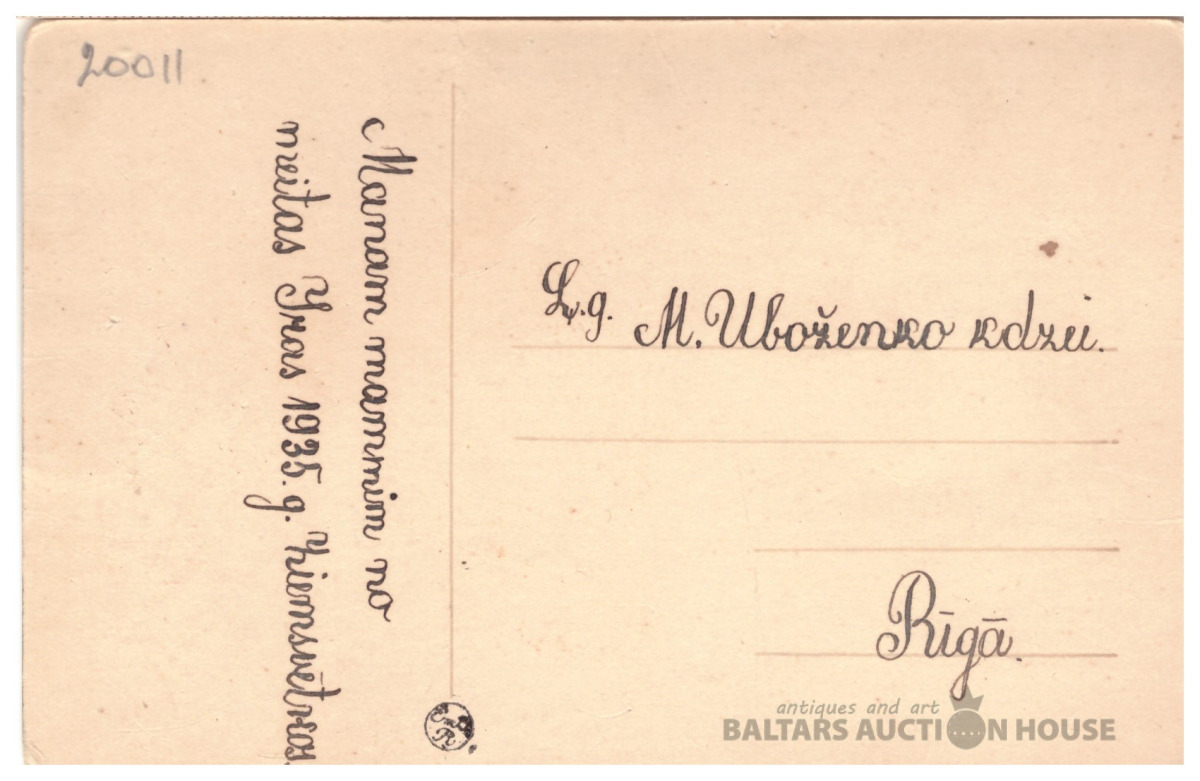 20011
Manam mammim no
meitas Iras 1935. g. Ziemsvētkos
Ļ. g. M. Uboženko kdzei.
Rīgā.
antiques and art
BALTARS AUCTION HOUSE